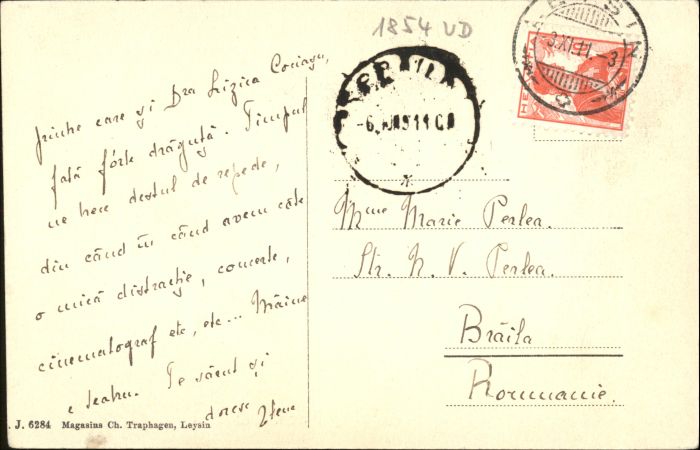 1854 VD
LEYSIN
-3.XI.11.-3
HELVETIA
BRAILA
-6.
911
printre care și Dra Lizica
fată fórte drăguță. Timpul
ne trece destul de repede,
din când în când avem câte
o mică distracție, concerte,
cinematograf etc, etc... Mâine
e teatru. Te sărut și
doresc
Mme Marie Perlea.
Str. N. V. Perlea.
Brăila
Roumanie.
J. 6284 Magasins Ch. Traphagen, Leysin